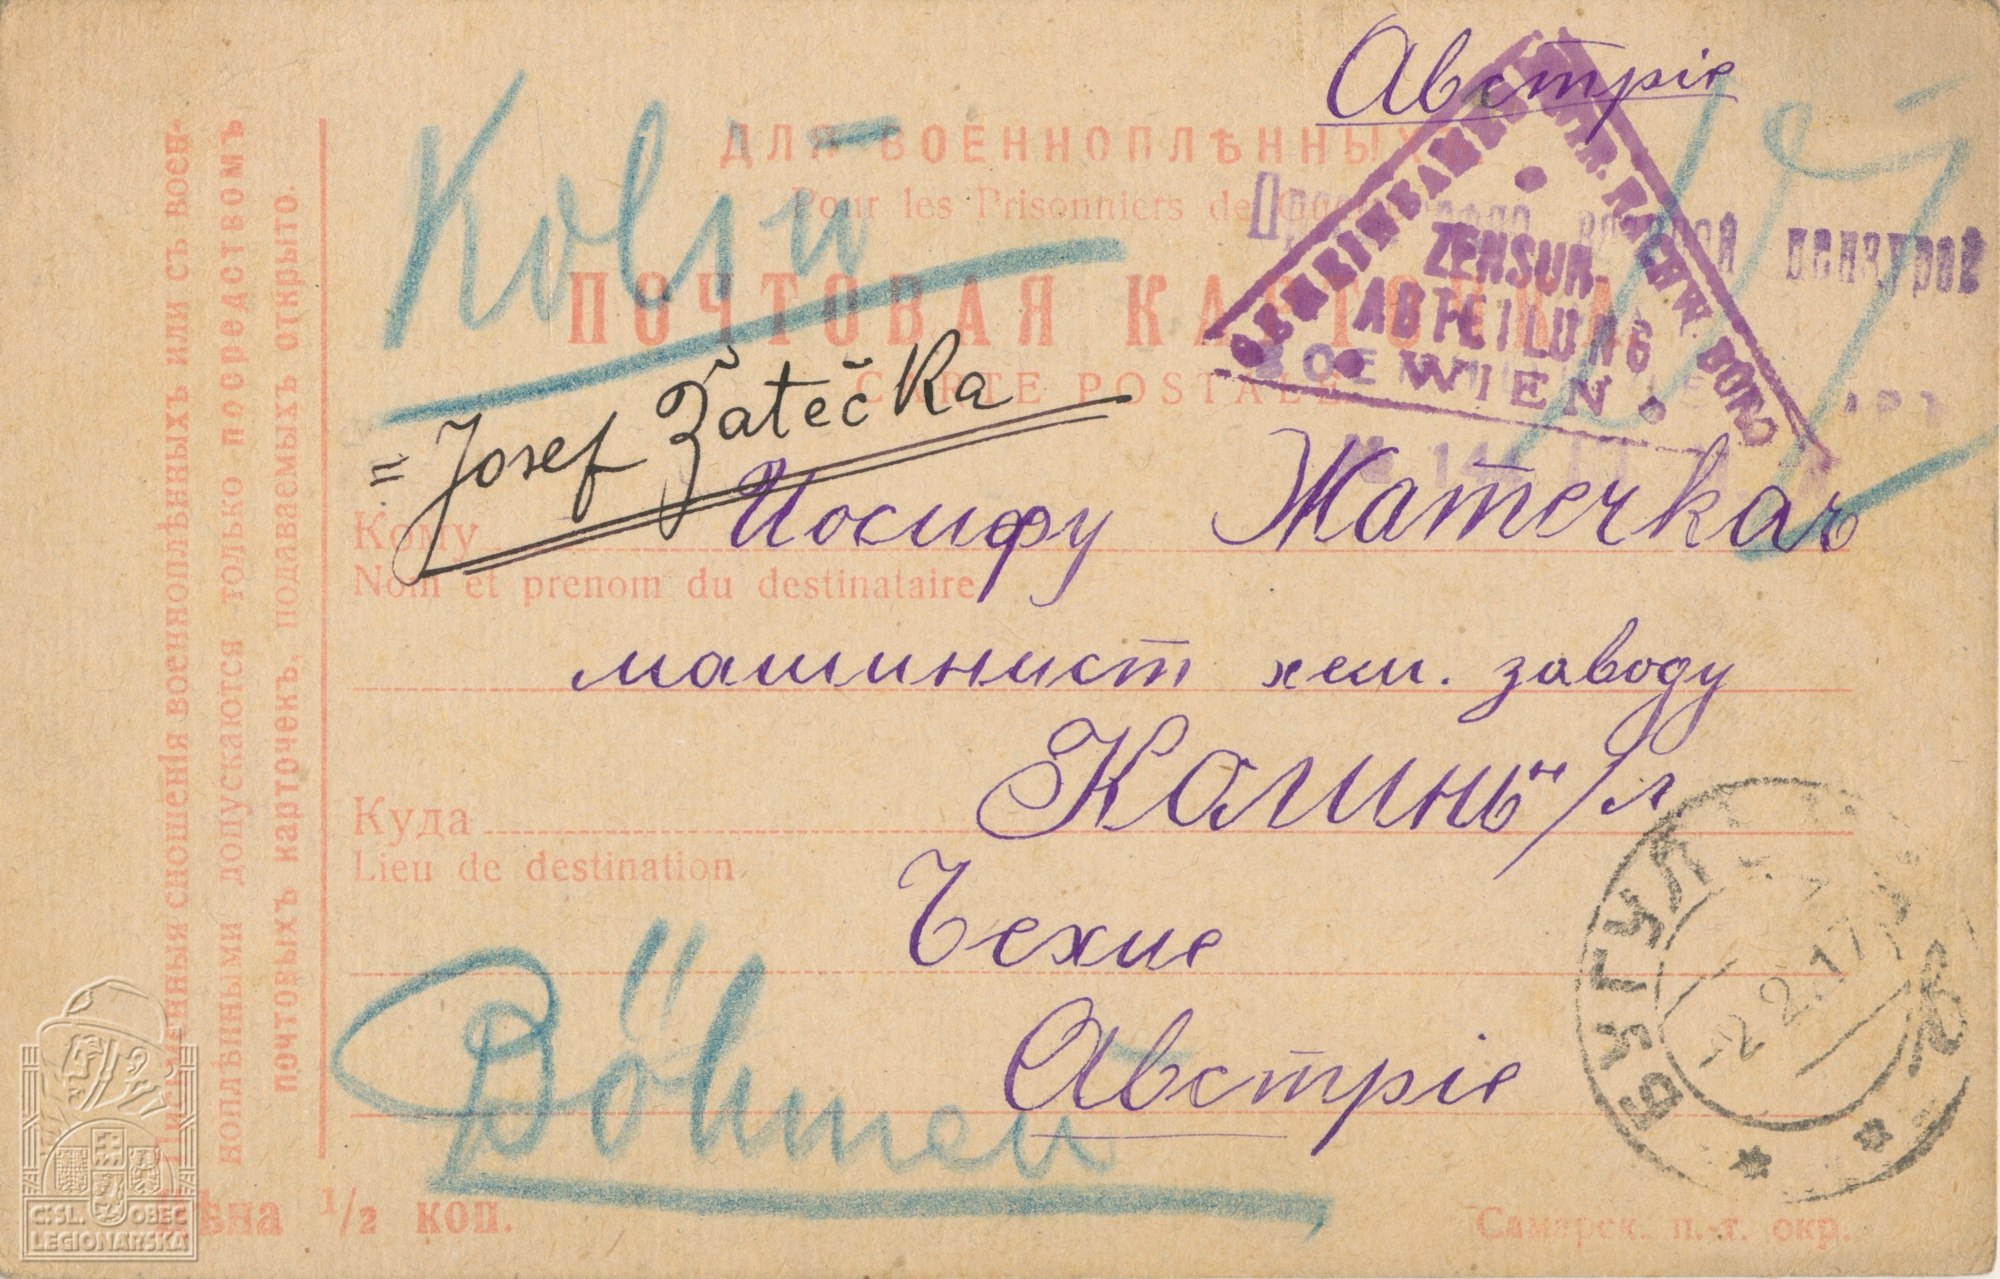 Австрія
ДЛЯ ВОЕННОПЛѢННЫХЪ
Pour les Prisonniers de
военной цензурой
ПОЧТОВАЯ КАРТОЧКА
CARTE POSTALE
Kolin
ZENSUR
ABTEILUNG
WIEN
= Josef Žatečka
Кому
Иосифу Жатечкаъ
Nom et prenom du destinataire
машинист хем. заводу
Куда
Колинъ н/л
Lieu de destination
Чехие
Австріе
Böhmen
БУГУЛ
-2.2.17
Письменныя сношенія военноплѣнныхъ или съ воен-
ноплѣнными допускаются только посредствомъ
почтовыхъ карточекъ, подаваемыхъ открыто.
Цѣна 1/2 коп.
Самарск. п.-т. окр.
ČSL. OBEC
LEGIONÁŘSKÁ